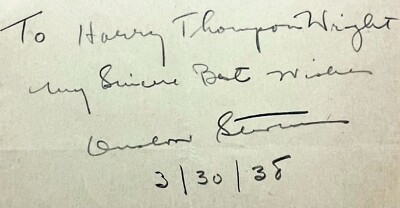 To Harry Thompson Wright
My Sincere Best Wishes
Onslow Stevens
3/30/38